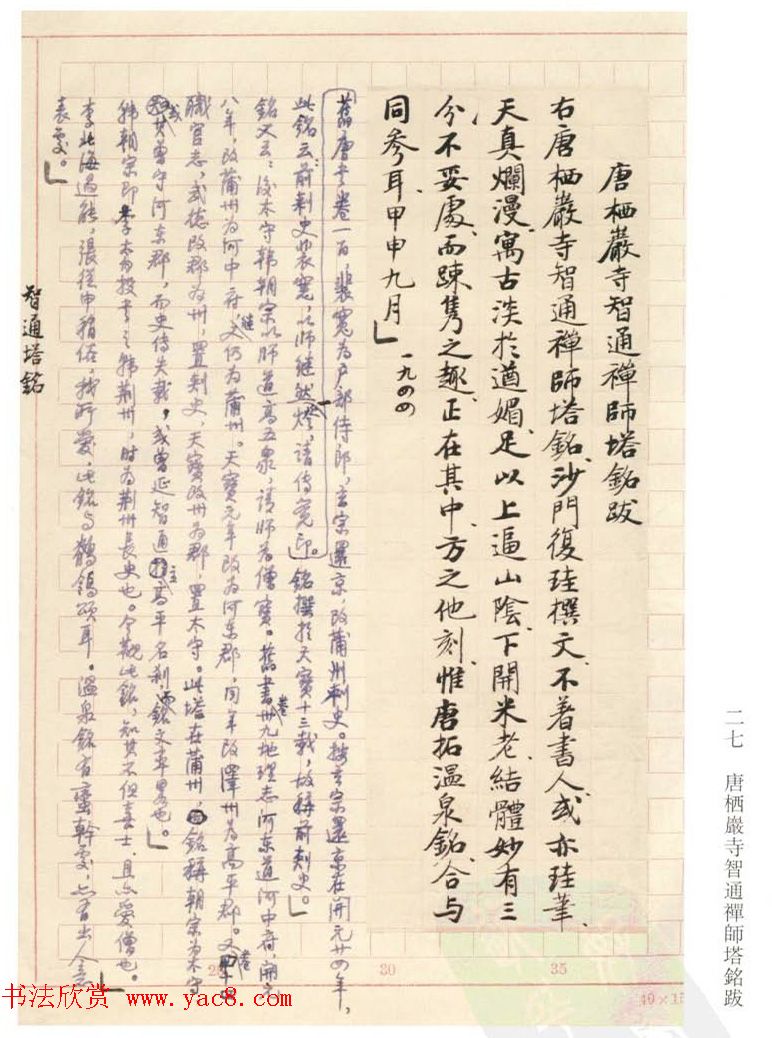 唐栖巖寺智通禪師塔銘跋
右唐栖巖寺智通禪師塔銘、沙門復珪撰文、不著書人、或亦珪筆、
天真爛漫、寓古淡於遒媚、足以上逼山陰、下開米老、結體妙有三
分不妥處、而踈雋之趣、正在其中、方之他刻、惟唐拓溫泉銘、合與
同參耳、甲申九月」
一九四四
舊唐書卷一百，裴寬為戶部侍郎，玄宗還京，改蒲州刺史。按玄宗還京在開元廿四年，
此銘云：前刺史裴寬，以師継然一燈，請傳寬印。銘撰於天寶十三載，故稱前刺史。」
銘又云：後太守韓朝宗以師道高五衆，請師為僧寶。舊書卷卅九地理志河東道河中府，開元
八年，改蒲州為河中府，継又仍為蒲州。天寶元年改為河东郡，同年改澤州為高平郡。又卷
職官志，武德改郡為州，置刺史，天寶改州為郡，置太守。此塔在蒲州，銘稱朝宗為太守
或其曾守河东郡，而史傳失載，或曾延智通主高平名刹，而銘文未畧也。」
韩朝宗即李太白投書之韩荆州，时为荆州長史也。今觀此銘，知其不但喜士，且亦爱僧也。
李北海過熊，張從申稍俗，我所爱，此銘与鶺鴒頌耳。溫泉銘有蛮幹處，亦有出人意
表處。」
智通塔銘
二七　唐栖巖寺智通禪師塔銘跋
25
30
35
40×15
书法欣赏 www.yac8.com